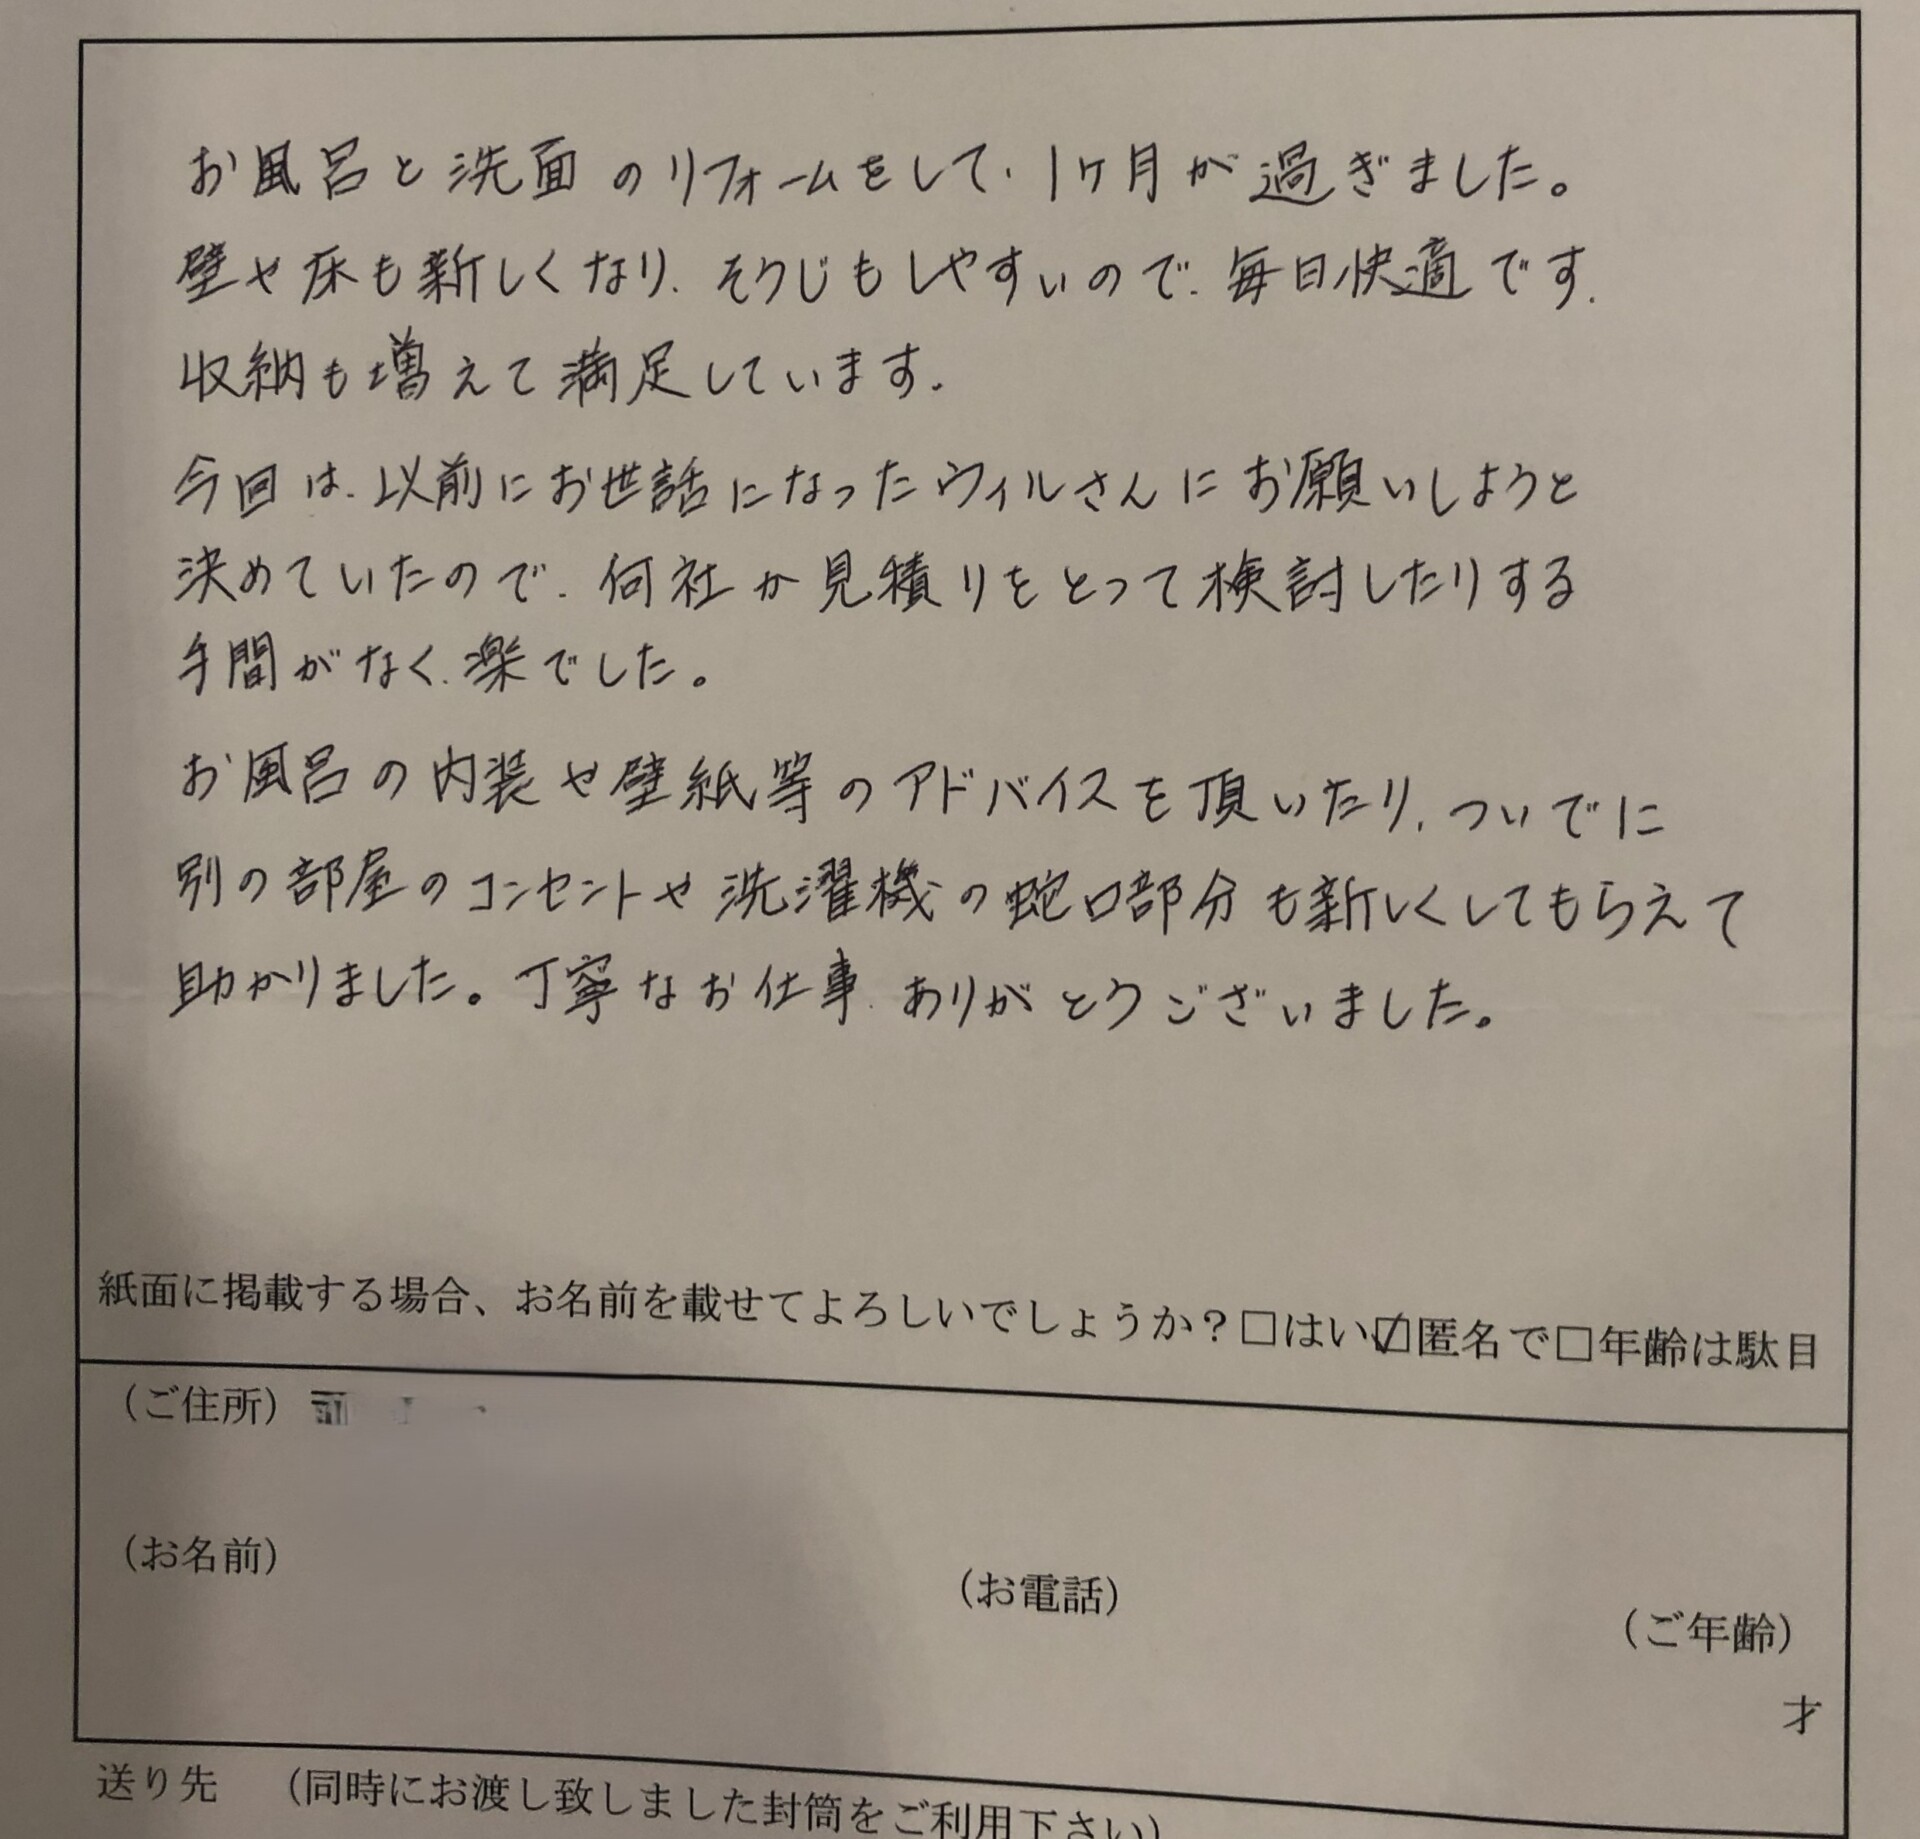 お風呂と洗面のリフォームをして、1ヶ月が過ぎました。
壁や床も新しくなり、そうじもしやすいので、毎日快適です。
収納も増えて満足しています。
今回は、以前にお世話になったウィルさんにお願いしようと
決めていたので、何社か見積りをとって検討したりする
手間がなく、楽でした。
お風呂の内装や壁紙等のアドバイスを頂いたり、ついでに
別の部屋のコンセントや洗濯機の蛇口部分も新しくしてもらえて
助かりました。丁寧なお仕事、ありがとうございました。
紙面に掲載する場合、お名前を載せてよろしいでしょうか？□はい☑匿名で□年齢は駄目
（ご住所）
（お名前）
（お電話）
（ご年齢）
才
送り先　（同時にお渡し致しました封筒をご利用下さい）